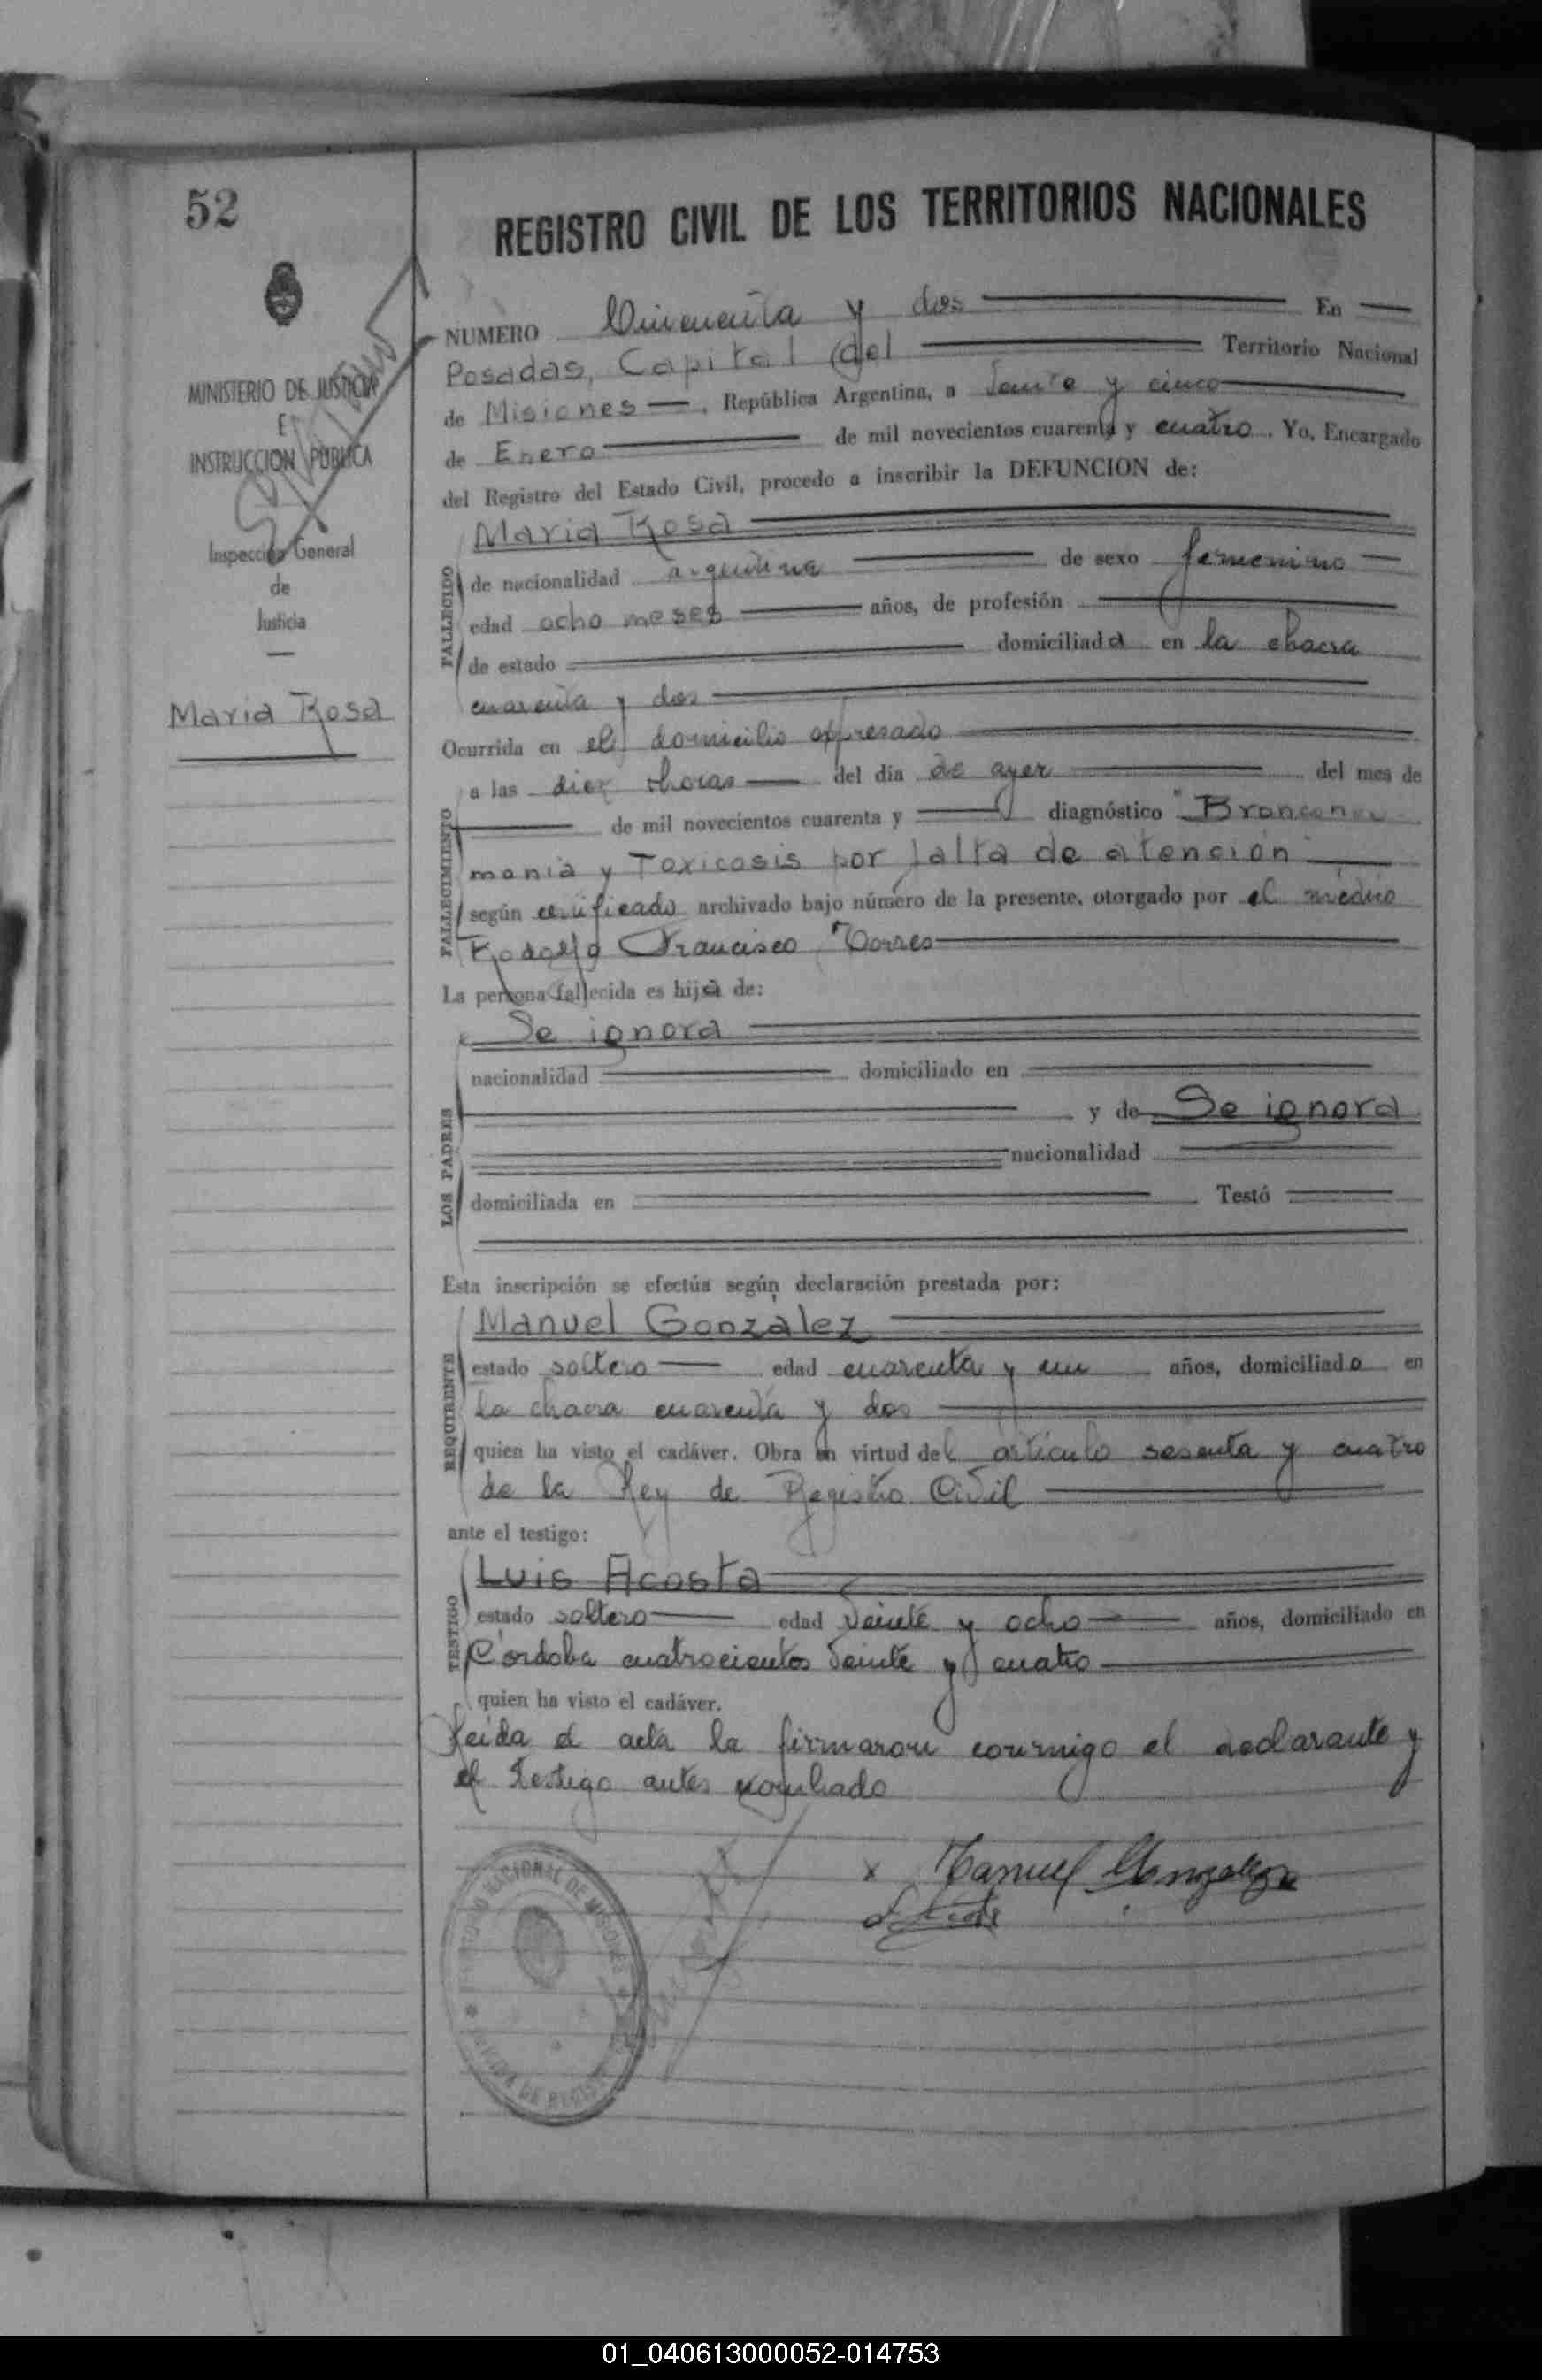 52
REGISTRO CIVIL DE LOS TERRITORIOS NACIONALES
MINISTERIO DE JUSTICIA
E
INSTRUCCION PUBLICA
Inspección General
de
Justicia
Maria Rosa
NUMERO Cincuenta y dos En
Posadas, Capital del Territorio Nacional
de Misiones, República Argentina, a veinte y cinco
de Enero de mil novecientos cuarenta y cuatro. Yo, Encargado
del Registro del Estado Civil, procedo a inscribir la DEFUNCION de:
FALLECIDO
Maria Rosa
de nacionalidad argentina de sexo femenino
edad ocho meses años, de profesión
de estado domiciliada en la chacra
cuarenta y dos
Ocurrida en el domicilio expresado
FALLECIMIENTO
a las diez horas del día de ayer del mes de
de mil novecientos cuarenta y diagnóstico "Bronconeu
monia y Toxicosis por falta de atención"
según certificado archivado bajo número de la presente, otorgado por el médico
Rodolfo Francisco Torres
La persona fallecida es hija de:
LOS PADRES
Se ignora
nacionalidad domiciliado en
y de Se ignora
nacionalidad
domiciliada en Testó
Esta inscripción se efectúa según declaración prestada por:
REQUIRENTE
Manuel Gonzalez
estado soltero edad cuarenta y un años, domiciliado en
la chacra cuarenta y dos
quien ha visto el cadáver. Obra en virtud del artículo sesenta y cuatro
de la Ley de Registro Civil
ante el testigo:
TESTIGO
Luis Acosta
estado soltero edad veinte y ocho años, domiciliado en
Córdoba cuatrocientos veinte y cuatro
quien ha visto el cadáver.
Leida el acta la firmaron conmigo el declarante y
el testigo antes nombrado
x Manuel Gonzalez
NACIONAL DE MISIONES
01_040613000052-014753